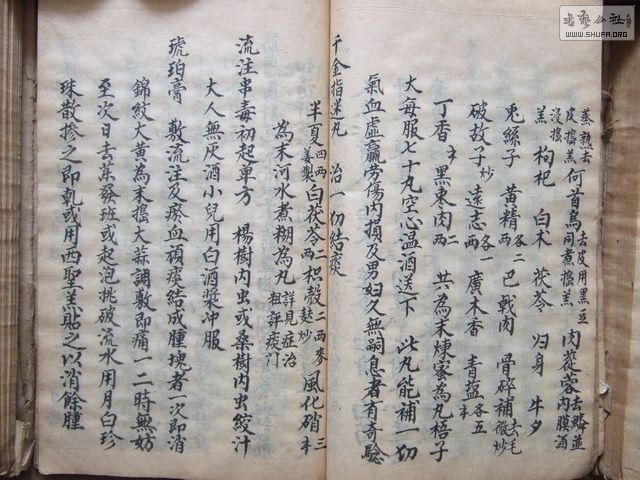 蒸熟去皮搗黑何首烏去皮用黑豆同煮搗羔肉蓯蓉去鱗並内膜酒浸搗
羔枸杞 白术 茯苓 归身 牛夕
兎絲子 黄精各二两 巴戟肉 骨碎補去毛微炒
破故子炒 遠志各一两 廣木香 青盐各五
丁香 黑枣肉二两 共為末煉蜜為丸梧子
大每服七十丸空心温酒送下 此丸能補一切
氣血虚羸勞傷内損及男妇久無嗣息者有奇騐
千金指迷丸 治一切結痰
半夏四两姜製白茯苓二两枳殼二两麥麸炒風化硝三
為末河水煮糊為丸詳見症治
流注串毒初起单方 楊樹内虫或桑樹内虫絞汁
大人無灰酒小兒用白酒漿冲服
琥珀膏 敷流注及瘀血頑痰結成腫塊者一次即消
錦紋大黄為末搗大蒜調敷即痛一二時無妨
至次日去藥發班或起泡挑破流水用月白珍
珠散摻之即乾或用西聖羔貼之以消餘腫
書藝公社
WWW.SHUFA.ORG